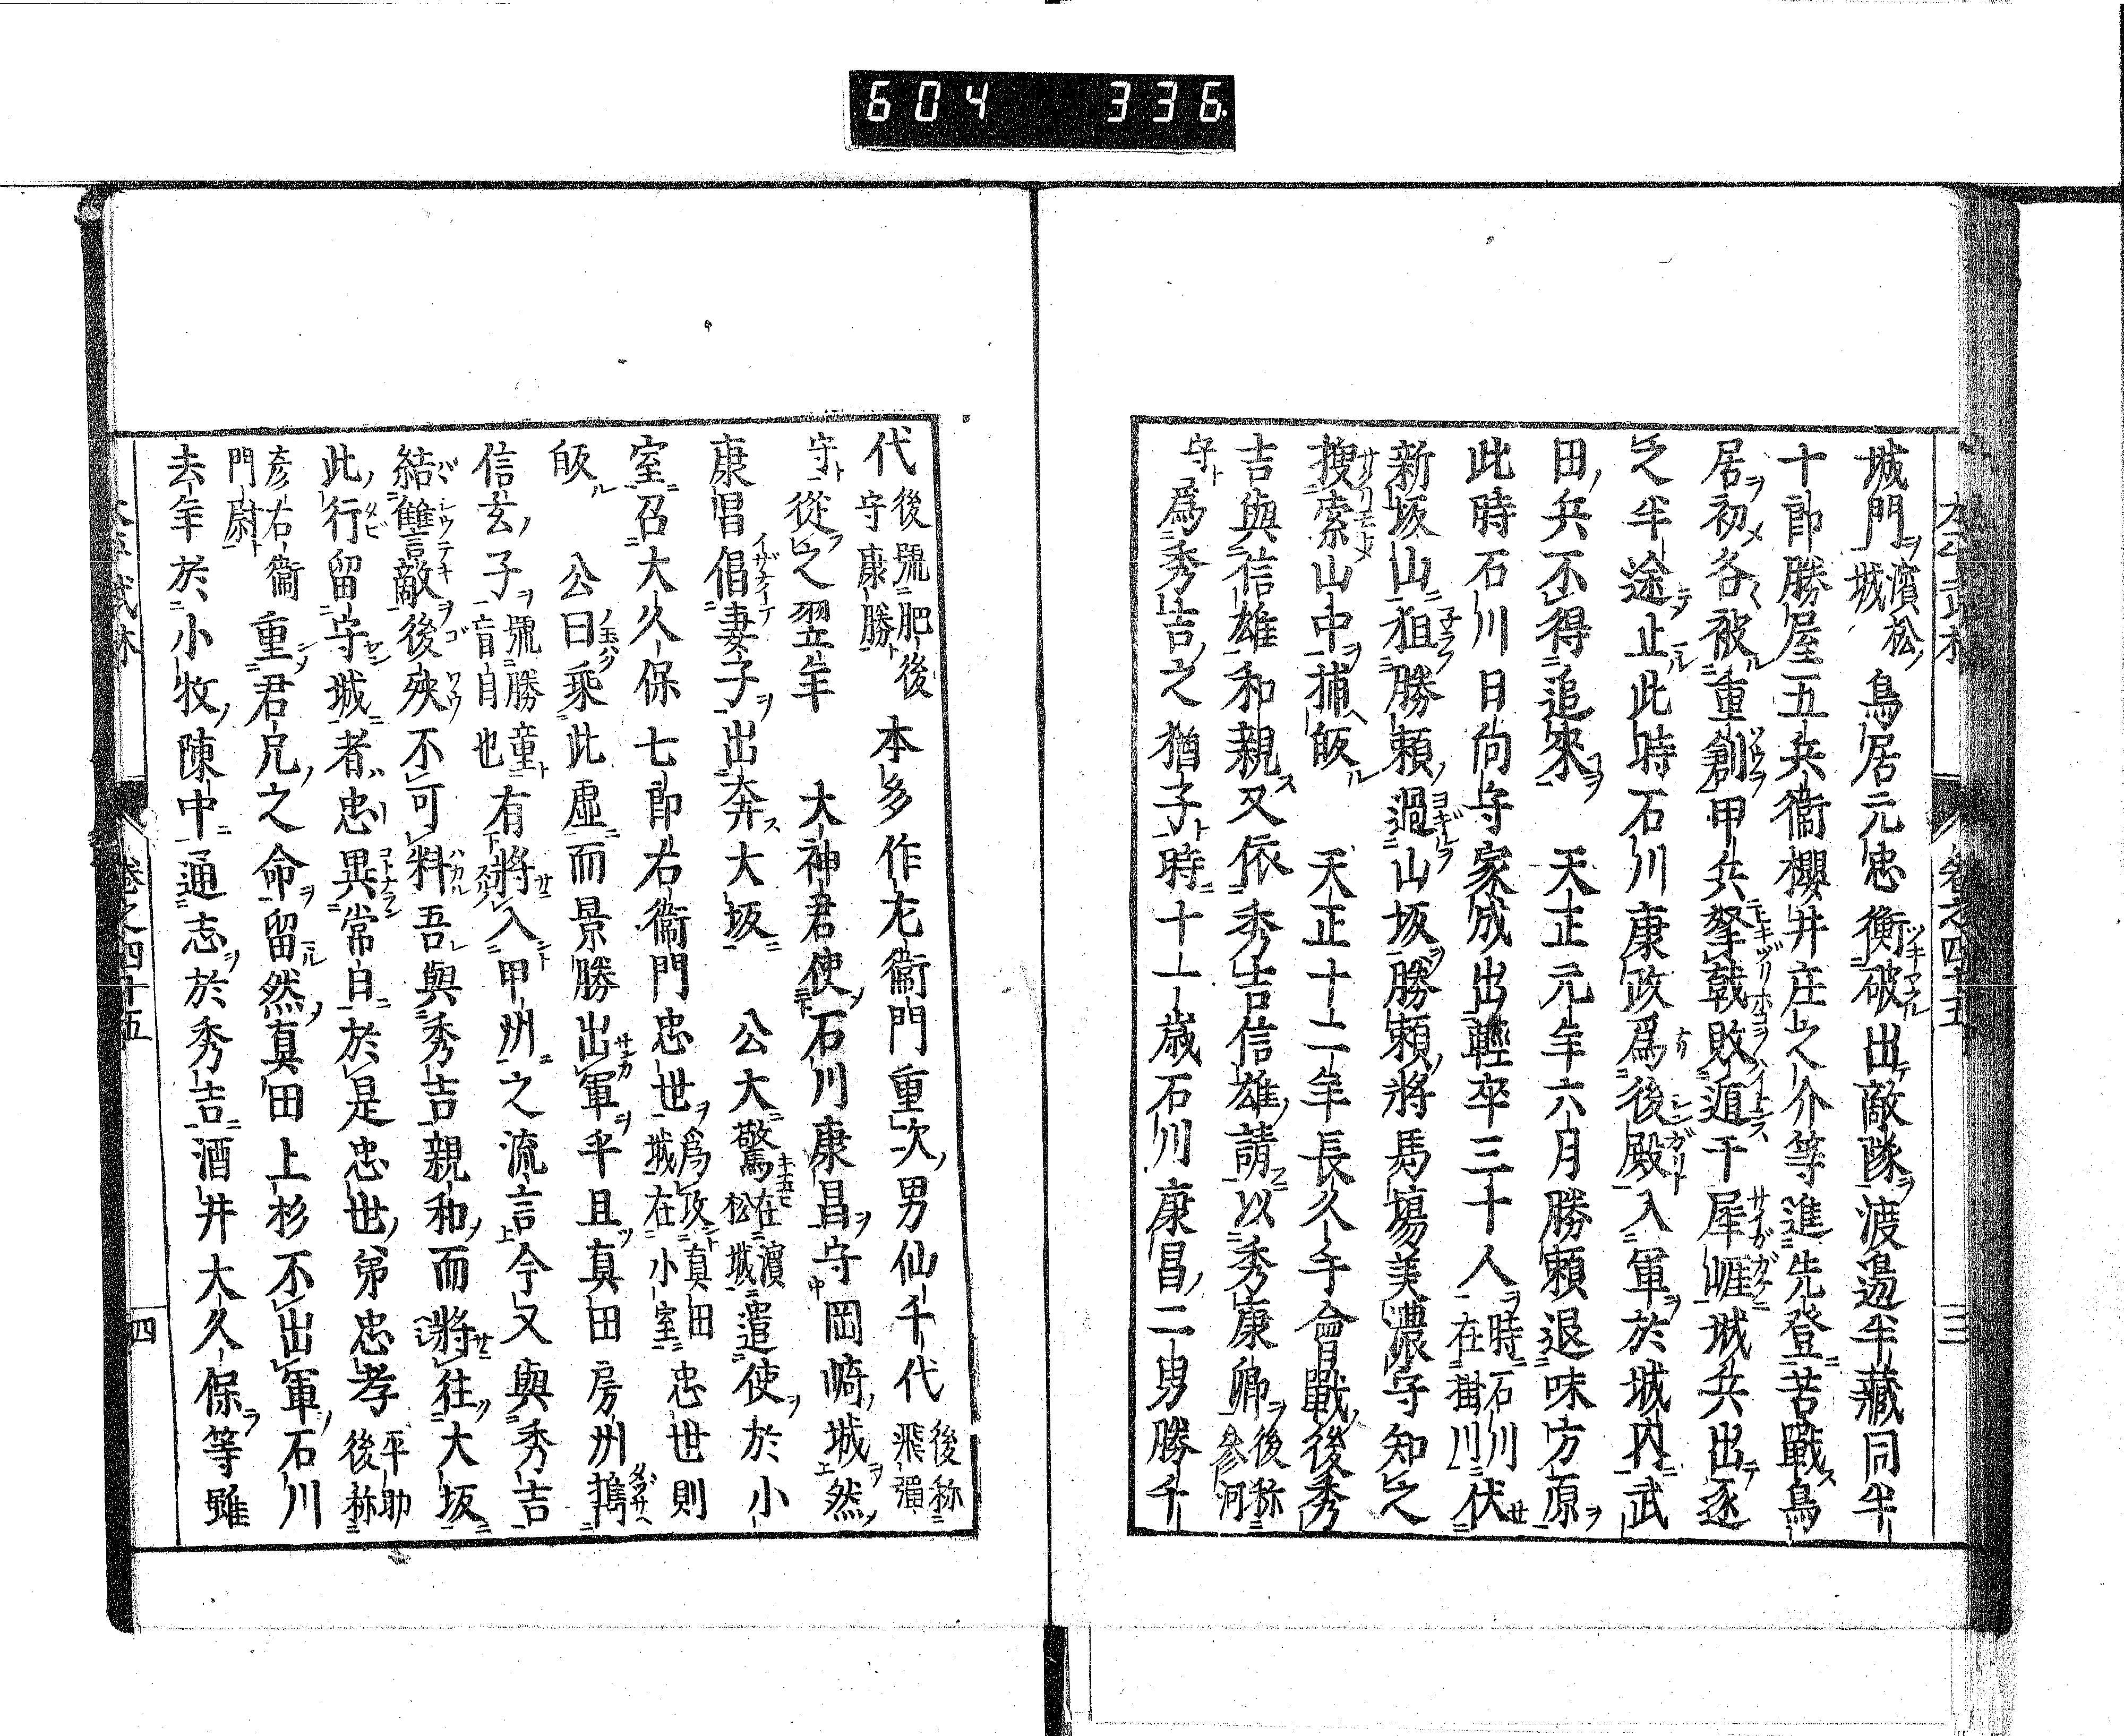 604 336
卷之四十五
三
城門濱松城鳥居元忠衝破出敵隊渡邉半藏同半
十郎勝屋五兵衞櫻井庄之介等進先登苦戰鳥
居初各被重創甲兵拏戟敗遁干犀崕城兵出逐
之半途止此時石川康政爲後殿入軍於城内武
田兵不得追來 天正元年六月勝頼退味方原
此時石川日向守家成出輕卒三十人時石川在掛川伏
新坂山狙勝頼過山坂勝頼將馬塲美濃守知之
搜索山中捕皈 天正十二年長久手會戰後秀
吉與信雄和親又依秀吉信雄請以秀康卿後称參河
守爲秀吉之猶子時十一歳石川康昌二男勝千
代後號肥後守康勝本多作左衞門重次男仙千代後称飛彈
守從之翌年 大神君使石川康昌守岡崎城然
康昌倡妻子出奔大坂 公大驚在濱松城遣使於小
室召大久保七郎右衞門忠世爲攻真田城在小室忠世則
皈 公曰乘此虛而景勝出軍平且真田房州携
信玄子號勝童盲目也有將入甲州之流言今又與秀吉
結讎敵後殃不可料吾與秀吉親和而將往大坂
此行留守城者忠異常自於是忠世弟忠孝平助後称
彦右衞門尉重君兄之命留然真田上杉不出軍石川
去年於小牧陳中通志於秀吉酒井大久保等雖
卷之四十五
四